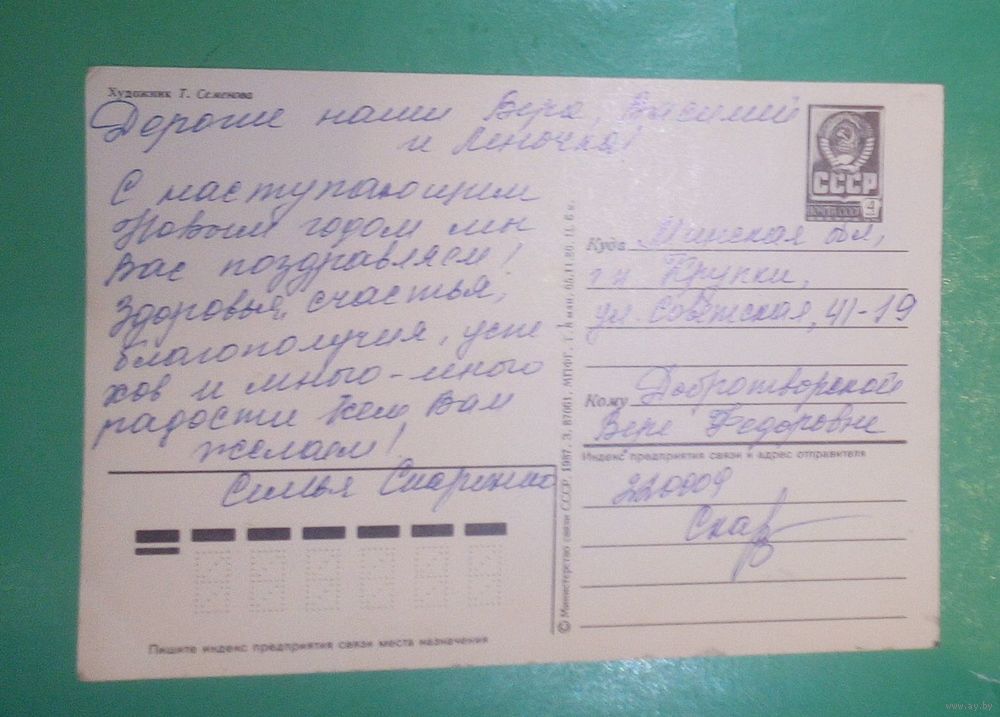 Художник Т. Семенова
Дорогие наши Вера, Василий
и Леночка!
С наступающим
Новым годом мы
Вас поздравляем!
Здоровья, счастья,
благополучия, успе
хов и много-много
радости Вам
желаем!
Семья Скаренко
Пишите индекс предприятия связи места назначения
© Министерство связи СССР, 1987. З. 87061. МПФГ.
СССР
ПОЧТА СССР
4
Куда Минская обл,
гп Крупки,
ул. Советская, 41-19
Кому Добротворской
Вере Федоровне
Индекс предприятия связи и адрес отправителя
220009
Скар
www.ay.by